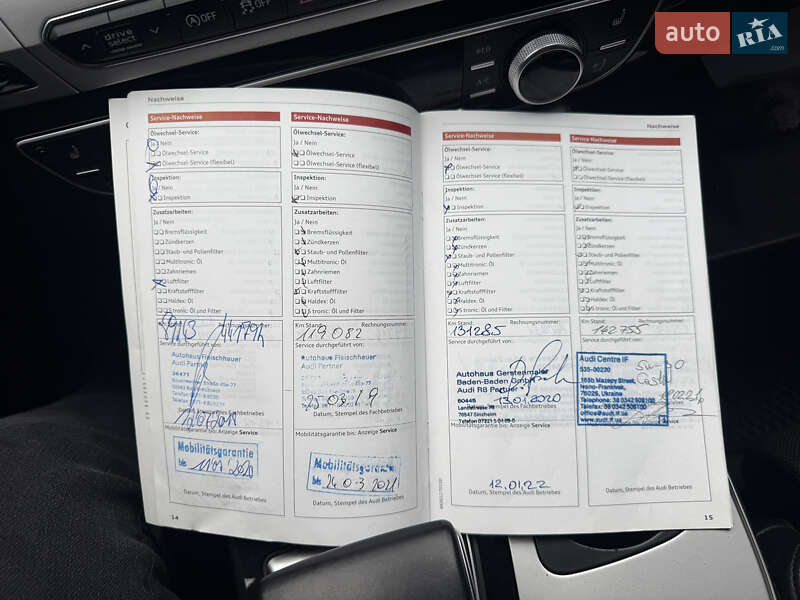 auto RIA.com
OFF
OFF
drive
select
Nachweise
Service-Nachweise
Ölwechsel-Service:
Ja / Nein
Ölwechsel-Service
Ölwechsel-Service (flexibel)
Inspektion:
Ja / Nein
Inspektion
Zusatzarbeiten:
Ja / Nein
Bremsflüssigkeit
Zündkerzen
Staub- und Pollenfilter
Multitronic: Öl
Zahnriemen
Luftfilter
Kraftstofffilter
Haldex: Öl
S tronic: Öl und Filter
Service durchgeführt von:
Autohaus Fleischhauer
Audi Partner
36471
Mobilitätsgarantie
bis
Datum, Stempel des Audi Betriebes
14
Service-Nachweise
Ölwechsel-Service:
Ja / Nein
Ölwechsel-Service
Ölwechsel-Service (flexibel)
Inspektion:
Ja / Nein
Inspektion
Zusatzarbeiten:
Ja / Nein
Bremsflüssigkeit
Zündkerzen
Staub- und Pollenfilter
Multitronic: Öl
Zahnriemen
Luftfilter
Kraftstofffilter
Haldex: Öl
S tronic: Öl und Filter
Km Stand: Rechnungsnummer:
119082
Service durchgeführt von:
Autohaus Fleischhauer
Audi Partner
25.03.19
Datum, Stempel des Fachbetriebes
Mobilitätsgarantie bis: Anzeige Service
Mobilitätsgarantie
bis 24.03.2021
Datum, Stempel des Audi Betriebes
Nachweise
Service-Nachweise
Ölwechsel-Service:
Ja / Nein
Ölwechsel-Service
Ölwechsel-Service (flexibel)
Inspektion:
Ja / Nein
Inspektion
Zusatzarbeiten:
Ja / Nein
Bremsflüssigkeit
Zündkerzen
Staub- und Pollenfilter
Multitronic: Öl
Zahnriemen
Luftfilter
Kraftstofffilter
Haldex: Öl
S tronic: Öl und Filter
Km Stand: Rechnungsnummer:
131285
Service durchgeführt von:
Autohaus Gerstenmaier
Baden-Baden GmbH
Audi R8 Partner
60445
13.01.2020
76547 Sinzheim
Mobilitätsgarantie bis: Anzeige Service
12.01.22
Datum, Stempel des Audi Betriebes
Service-Nachweise
Ölwechsel-Service:
Ja / Nein
Ölwechsel-Service
Ölwechsel-Service (flexibel)
Inspektion:
Ja / Nein
Inspektion
Zusatzarbeiten:
Ja / Nein
Bremsflüssigkeit
Zündkerzen
Staub- und Pollenfilter
Multitronic: Öl
Zahnriemen
Luftfilter
Kraftstofffilter
Haldex: Öl
S tronic: Öl und Filter
Km Stand: Rechnungsnummer:
142755
Audi Centre IF
535-00220
Ivano-Frankivsk,
76026, Ukraine
office@audi.if.ua
www.audi.if.ua
Service
Datum, Stempel des Audi Betriebes
15